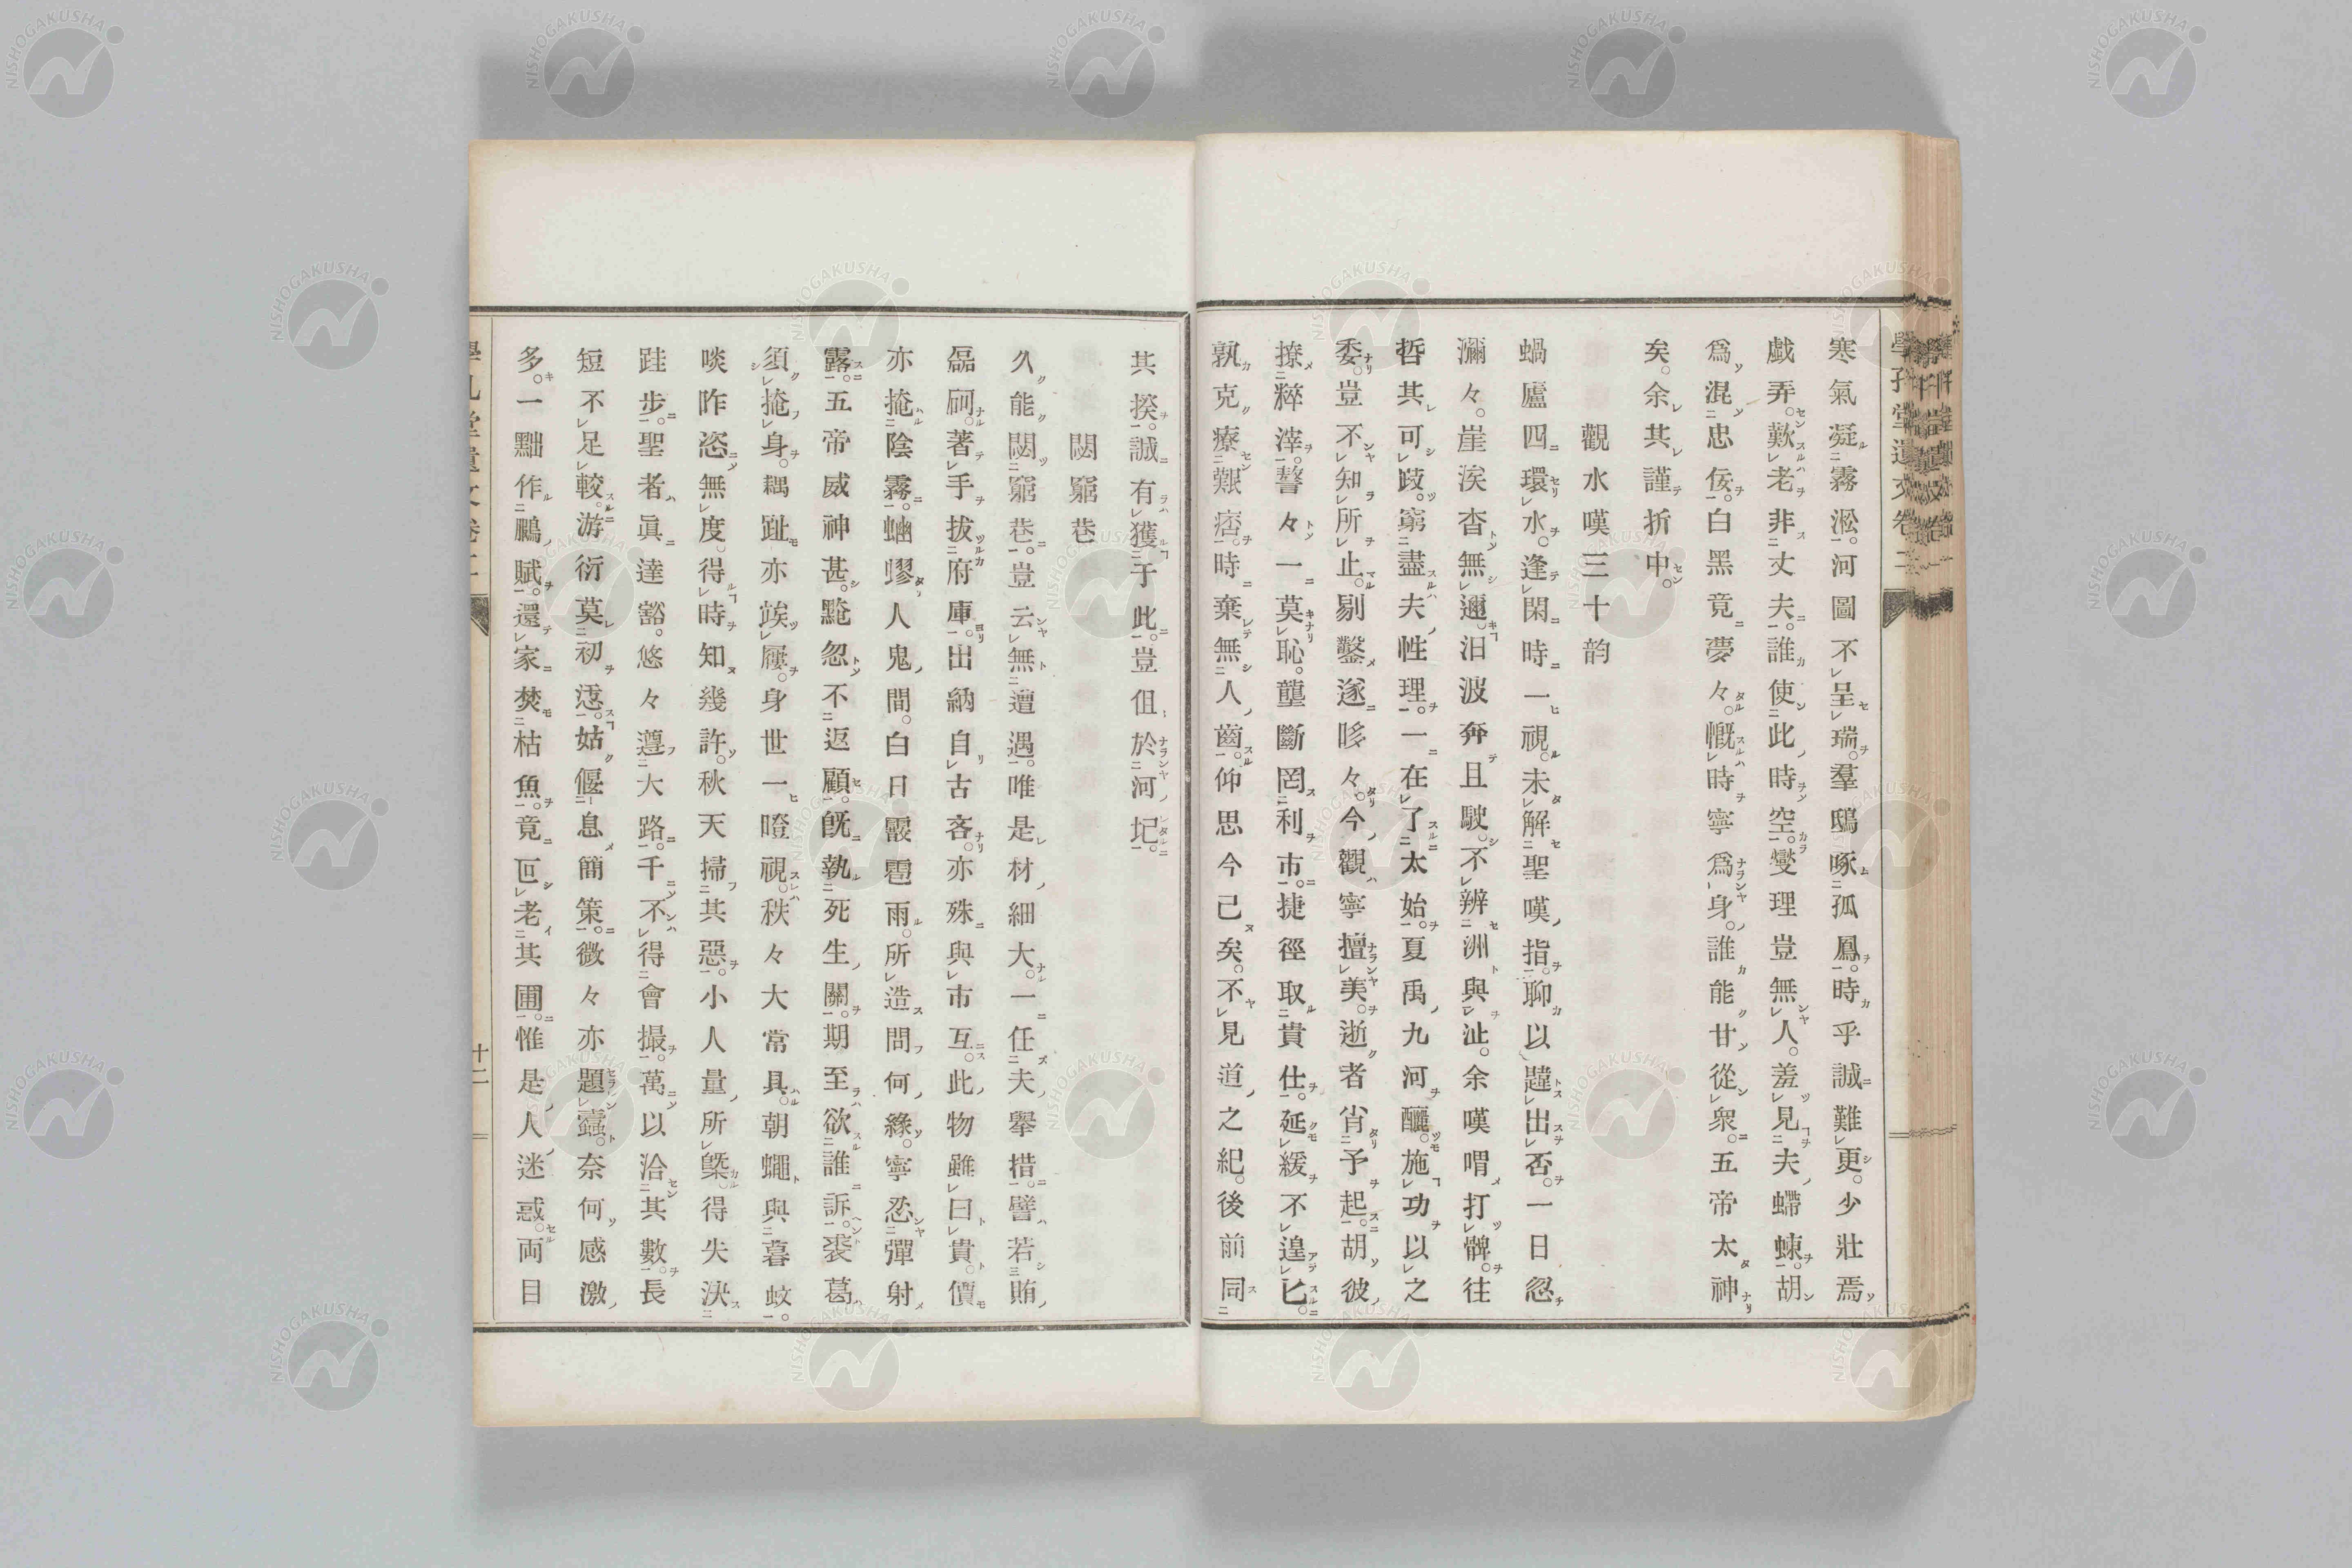 寒氣凝霧淞。河圖不呈瑞。羣鴟啄孤鳳。時乎誠難更。少壯焉
戲弄。歎老非丈夫。誰使此時空。燮理豈無人。羞見夫蠕蝀。胡
爲混忠佞。白黑竟夢々。慨時寧爲身。誰能甘從衆。五帝太神
矣。余其謹折中。
觀水嘆三十韵
蝸廬四環水。逢閑時一視。未解聖嘆指。聊以韙出否。一日忽
瀰々。崖涘杳無邇。汩波奔且駛。不辨洲與沚。余嘆喟打髀。往
哲其可跂。窮盡夫性理。一在了太始。夏禹九河釃。施功以之
委。豈不知所止。剔鑿遂哆々。今觀寧擅美。逝者肖予起。胡彼
撩粹滓。謷々一莫恥。壟斷罔利市。捷徑取貴仕。延緩不遑匕。
孰克療艱痞。時棄無人齒。仰思今已矣。不見道之紀。後前同
其揆。誠有獲于此。豈伹於河圮。
閎窮巷
久能閎窮巷。豈云無遭遇。唯是材細大。一任夫擧措。譬若賄
磊砢。著手拔府庫。出納自古吝。亦殊與市互。此物雖曰貴。價
亦掩陰霧。蚰蟉人鬼間。白日霰雹雨。所造問何緣。寧忍彈射
露。五帝威神甚。黤忽不返顧。旣執死生關。期至欲誰訴。裘葛
須掩身。耦趾亦竢屨。身世一瞪視。秩々大常具。朝蠅與暮蚊。
啖昨恣無度。得時知幾許。秋天掃其惡。小人量所槩。得失決
跬步。聖者眞達豁。悠々遵大路。千不得會撮。萬以洽其數。長
短不足較。游衍莫初愆。姑偃息簡策。微々亦題蠹。奈何感激
多。一黜作鵩賦。還家焚枯魚。竟叵老其圃。惟是人迷惑。両目
學孔堂遺文卷二
十二